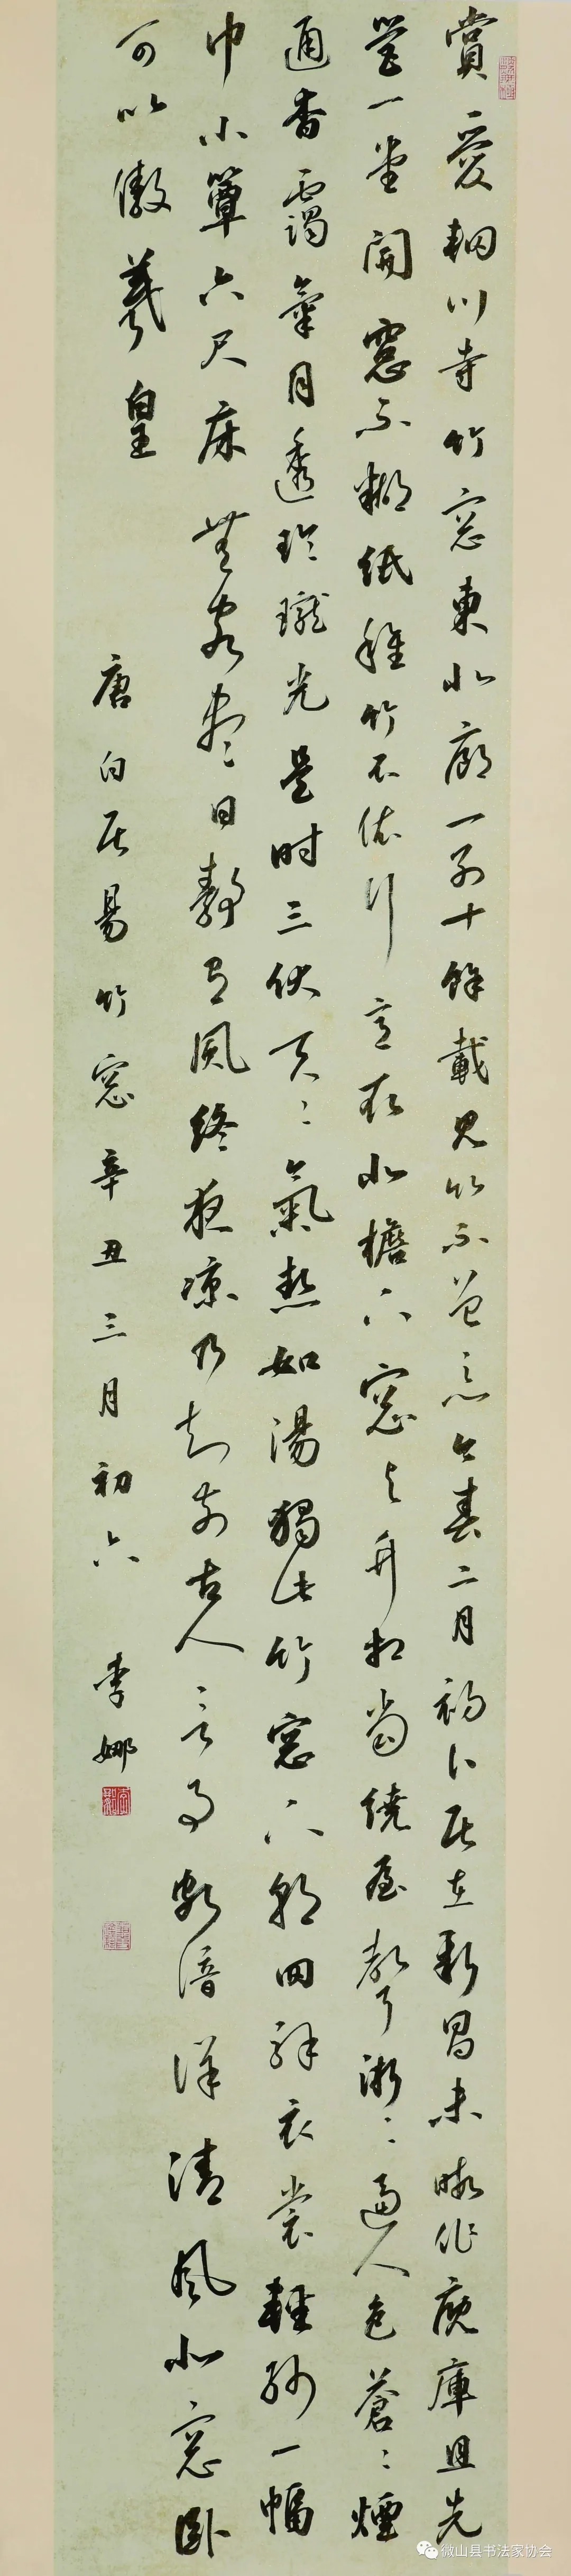 賞愛輞川寺竹窓東北廊一別十餘載見竹不曾忘今春二月初卜居在新昌未暇作廐庫且先
營一堂開窓不糊紙種竹不依行意取北檐下窓与竹相當繞屋聲淅〻逼人色蒼〻煙
通杳靄氣月透玲瓏光是时三伏天〻氣熱如湯獨此竹窓下朝回解衣裳輕紗一幅
巾小簟六尺床無客盡日靜有風終夜凉乃知前古人言事頗諳詳清風北窓臥
可以傲羲皇
唐白居易竹窓辛丑三月初六 李娜
微山县书法家协会